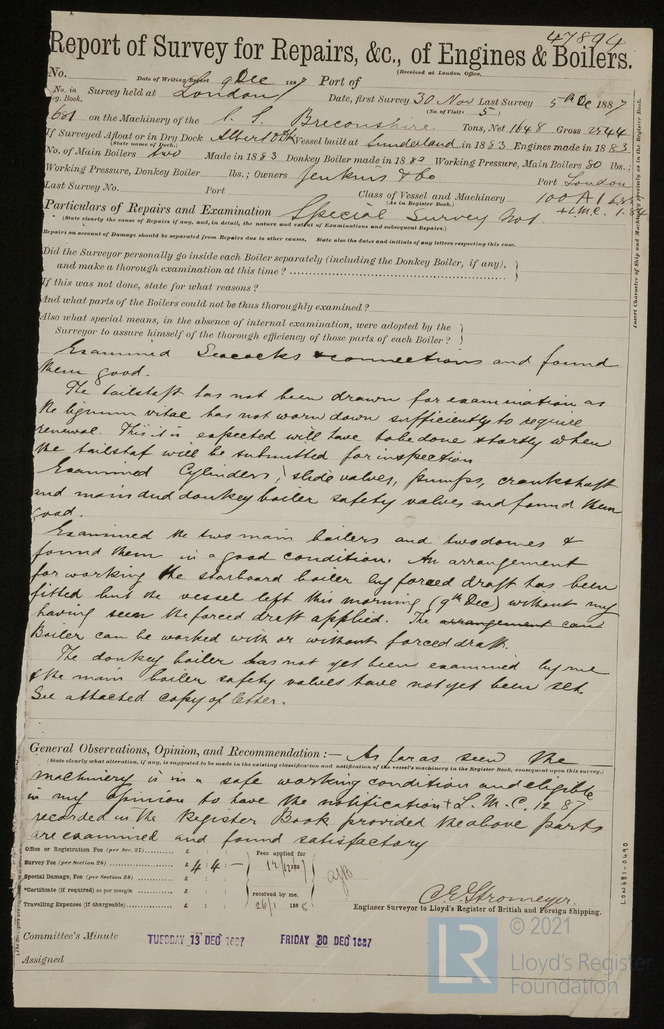 47894
Report of Survey for Repairs, &c., of Engines & Boilers.
(Received at London Office,
No. Date of Writing Report 9 Dec 1887 Port of
No. in Reg. Book. Survey held at London Date, first Survey 30 Nov Last Survey 5th Dec 1887
(No. of Visits 5)
681 on the Machinery of the S. S. Breconshire. Tons, Net 1648 Gross 2544
If Surveyed Afloat or in Dry Dock Albert Dk Vessel built at Sunderland in 1883 Engines made in 1883
(State name of Dock.)
No. of Main Boilers two Made in 1883 Donkey Boiler made in 188 Working Pressure, Main Boilers 80 lbs.;
Working Pressure, Donkey Boiler lbs.; Owners Jenkins & Co Port London
Last Survey No. Port Class of Vessel and Machinery 100 A 1
(As in Register Book.) + L.M.C.
Particulars of Repairs and Examination Special Survey No 1
(State clearly the cause of Repairs if any, and, in detail, the nature and extent of Examinations and subsequent Repairs.)
Repairs on account of Damage should be separated from Repairs due to other causes, State also the dates and initials of any letters respecting this case.
Did the Surveyor personally go inside each Boiler separately (including the Donkey Boiler, if any),
and make a thorough examination at this time?
If this was not done, state for what reasons?
And what parts of the Boilers could not be thus thoroughly examined?
Also what special means, in the absence of internal examination, were adopted by the
Surveyor to assure himself of the thorough efficiency of those parts of each Boiler?
Examined Seacocks & connections and found
them good.
The tailshaft has not been drawn for examination as
the lignum vitae has not worn down sufficiently to require
renewal. This it is expected will have to be done shortly when
the tailshaf will be submitted for inspection
Examined Cylinders, slide valves, pumps, crankshaft
and main and donkey boiler safety valves and found them
good.
Examined the two main boilers and two domes &
found them in a good condition. An arrangement
for working the starboard boiler by forced draft has been
fitted but the vessel left this morning (9th Dec) without my
having seen the forced draft applied. The arrangement can
Boiler can be worked with or without forced draft.
The donkey boiler has not yet been examined by me
& the main boiler safety valves have not yet been set.
See attached copy of letter.
General Observations, Opinion, and Recommendation :— As far as seen the
(State clearly what alteration, if any, is suggested to be made in the existing classification and notification of the vessel's machinery in the Register Book, consequent upon this survey.)
machinery is in a safe working condition and eligible
in my opinion to have the notification + L. M. C. 12 87
recorded in the Register Book provided the above parts
are examined and found satisfactory
Office or Registration Fee (per Sec. 27) £ : :
Survey Fee (per Section 28) £ 4 : 4 : —
Special Damage, Fee (per Section 28) £ : :
*Certificate (if required) as per margin £ : :
Travelling Expenses (if chargeable) £ : :
Fees applied for
12/12/1887
received by me,
26/1 188
C. E. Stromeyer.
Engineer Surveyor to Lloyd's Register of British and Foreign Shipping.
Committee's Minute TUESDAY 13 DEC 1887 FRIDAY 30 DEC 1887
Assigned
Insert Character of Ship and Machinery precisely as in the Register Book.
LON681-0490
LR
© 2021
Lloyd's Register
Foundation